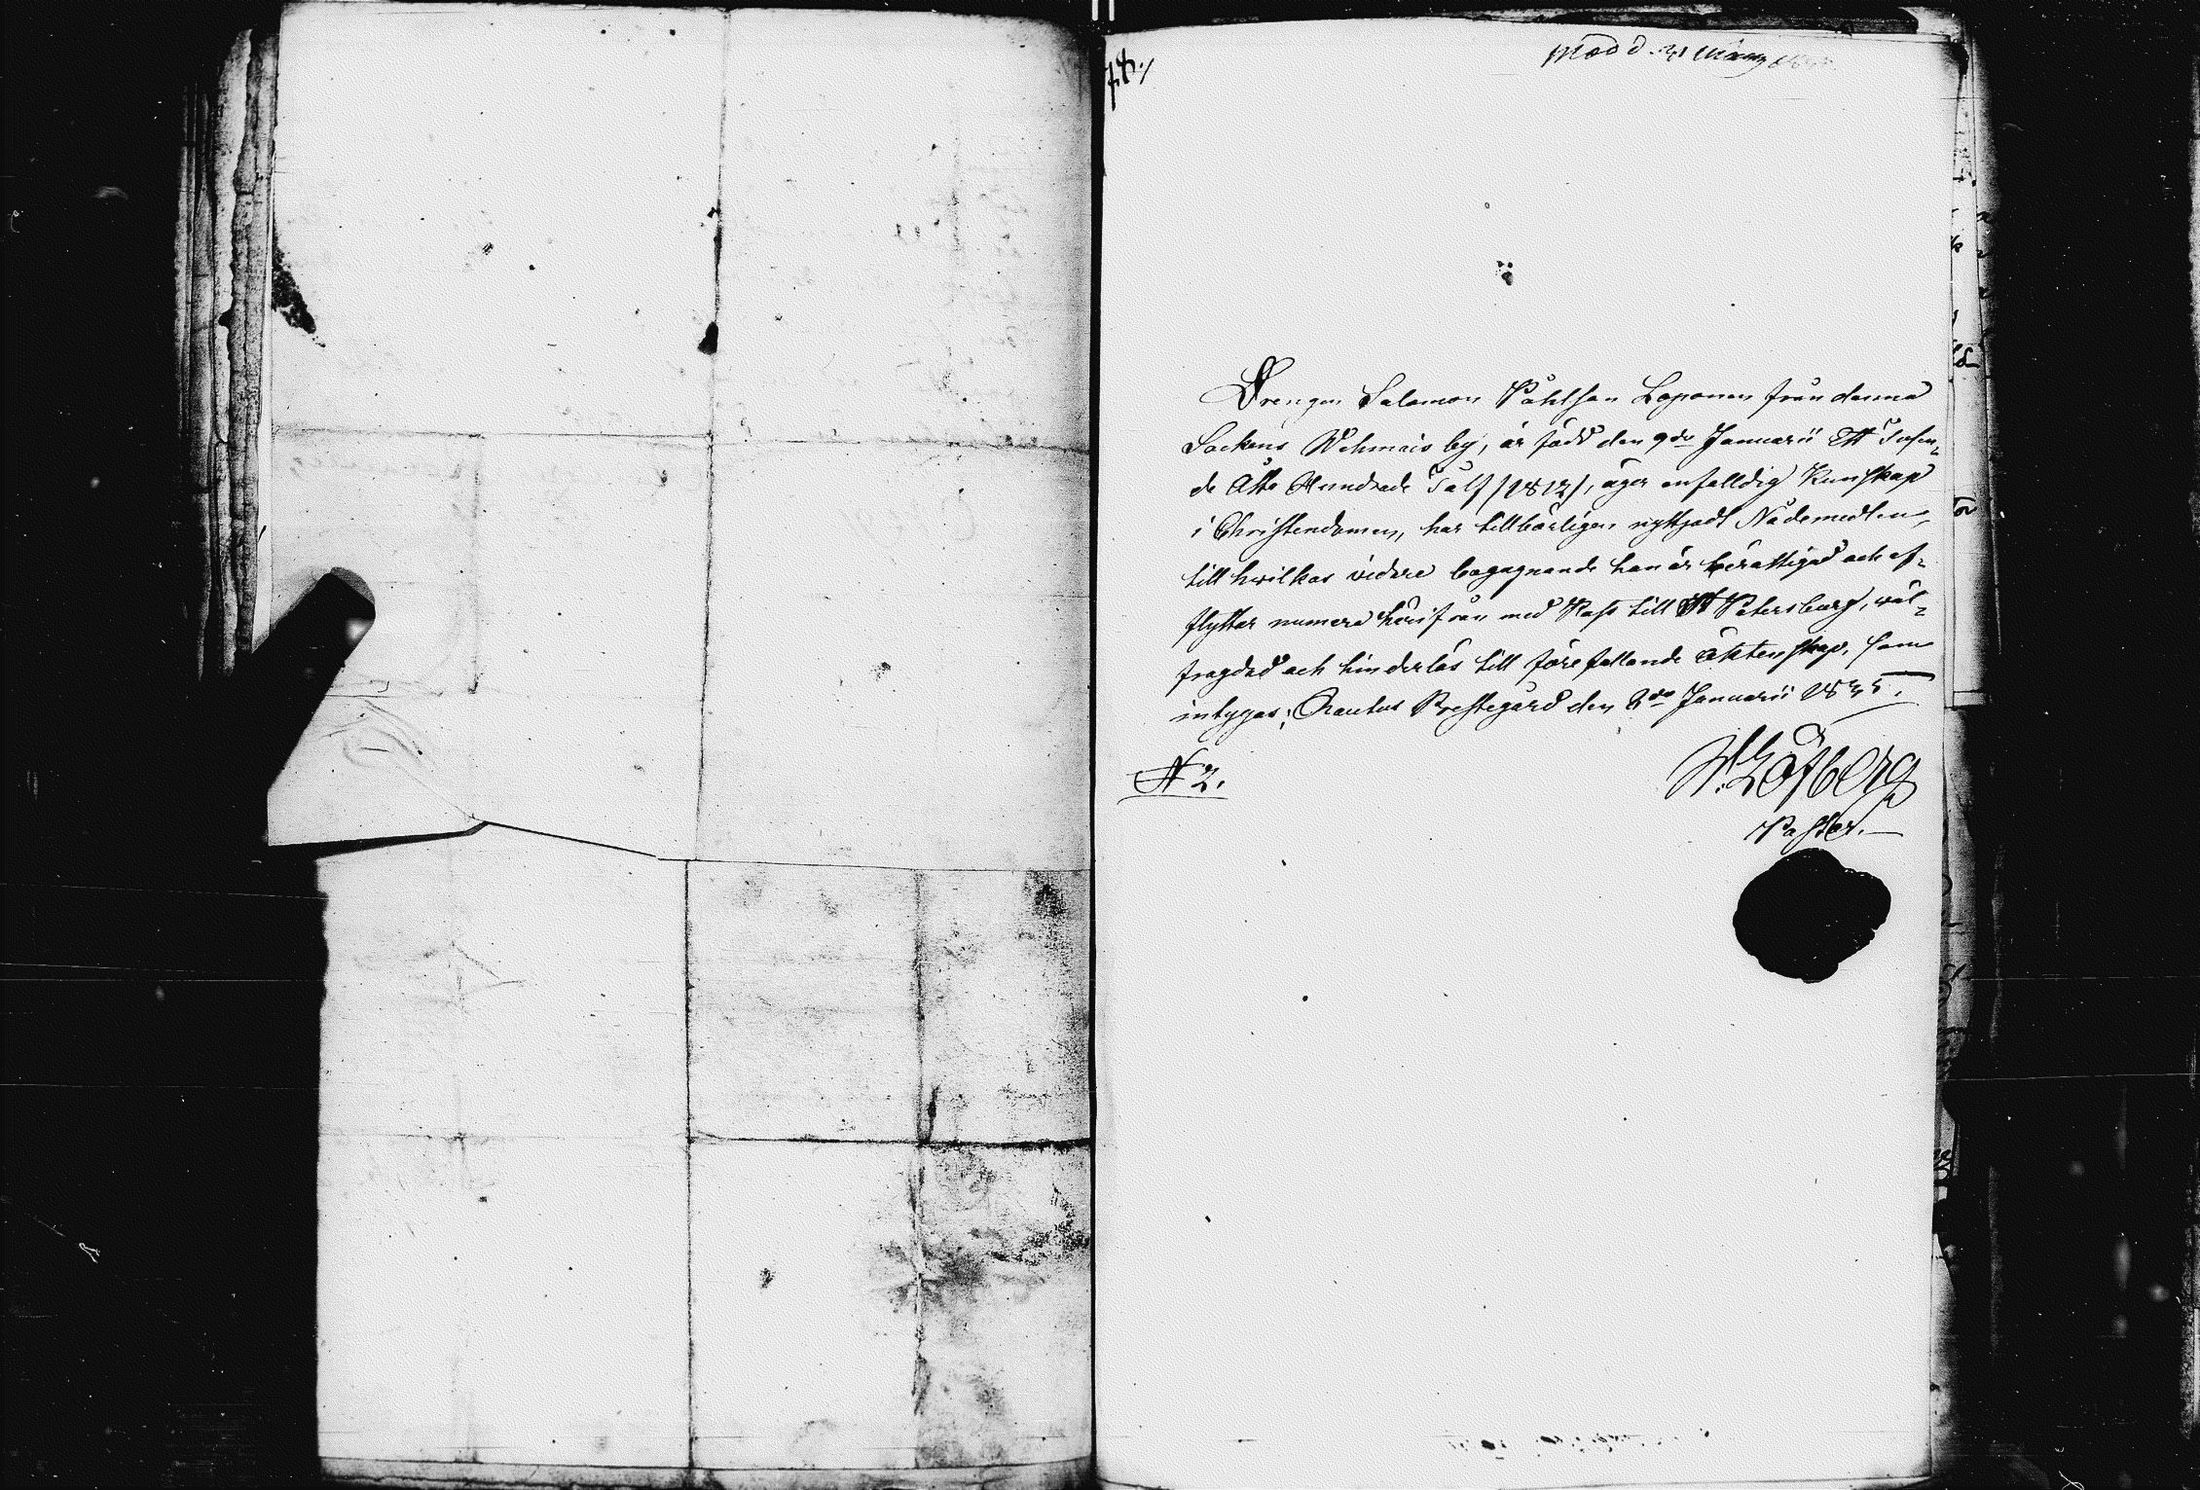 78./
Drengen Salomon Påhlsson Loponen från denna
Sockens Wehmais by, är född den 9de Januarii Ett Tusen-
de Åtta Hundrade Tolf /1812/, äger enfalldig Kunskap
i Christendomen, har tillbörligen nyttjadt Nådemedlen,
till hwilkas vidare begagnande han är berättigad och af-
flyttar numera härifrån med Pass till St Petersburg, wäl-
frägdad och hinderlös till förefallande äktenskap, som
intygas; Rautus Prestegård den 2de Januarii 1835.
N 2.
Löfberg
Pastor.